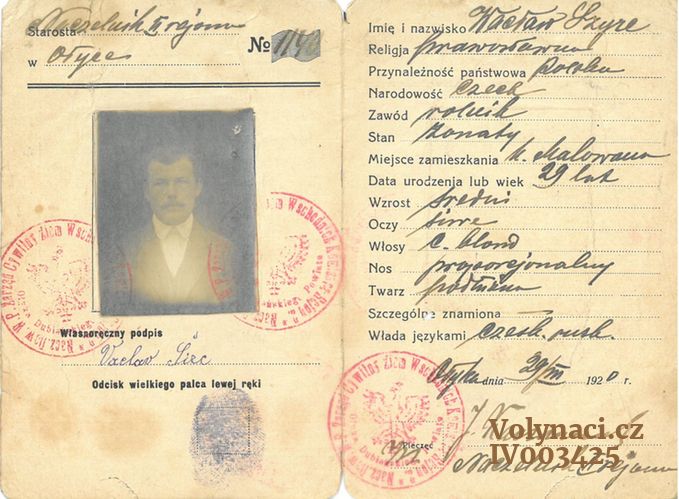 Starosta Naczelnik II rejonu
w Ołyce
№ 1143
Własnoręczny podpis
Vaclav
Odcisk wielkiego palca lewej ręki
Imię i nazwisko Wacław Szyrc
Religja prawosławna
Przynależność państwowa Polska
Narodowość czech
Zawód rolnik
Stan żonaty
Miejsce zamieszkania k. Malowana
Data urodzenia lub wiek 29 lat
Wzrost średni
Oczy siwe
Włosy c. blond
Nos proporcjonalny
Twarz podłużna
Szczególne znamiona
Włada językami czesk. rusk.
Ołyka dnia 29/III 1920 r.
Pieczęć
Naczelnik Rejonu
Zarząd Cywilny Ziem Wschodnich
Volynaci.cz
IV003425